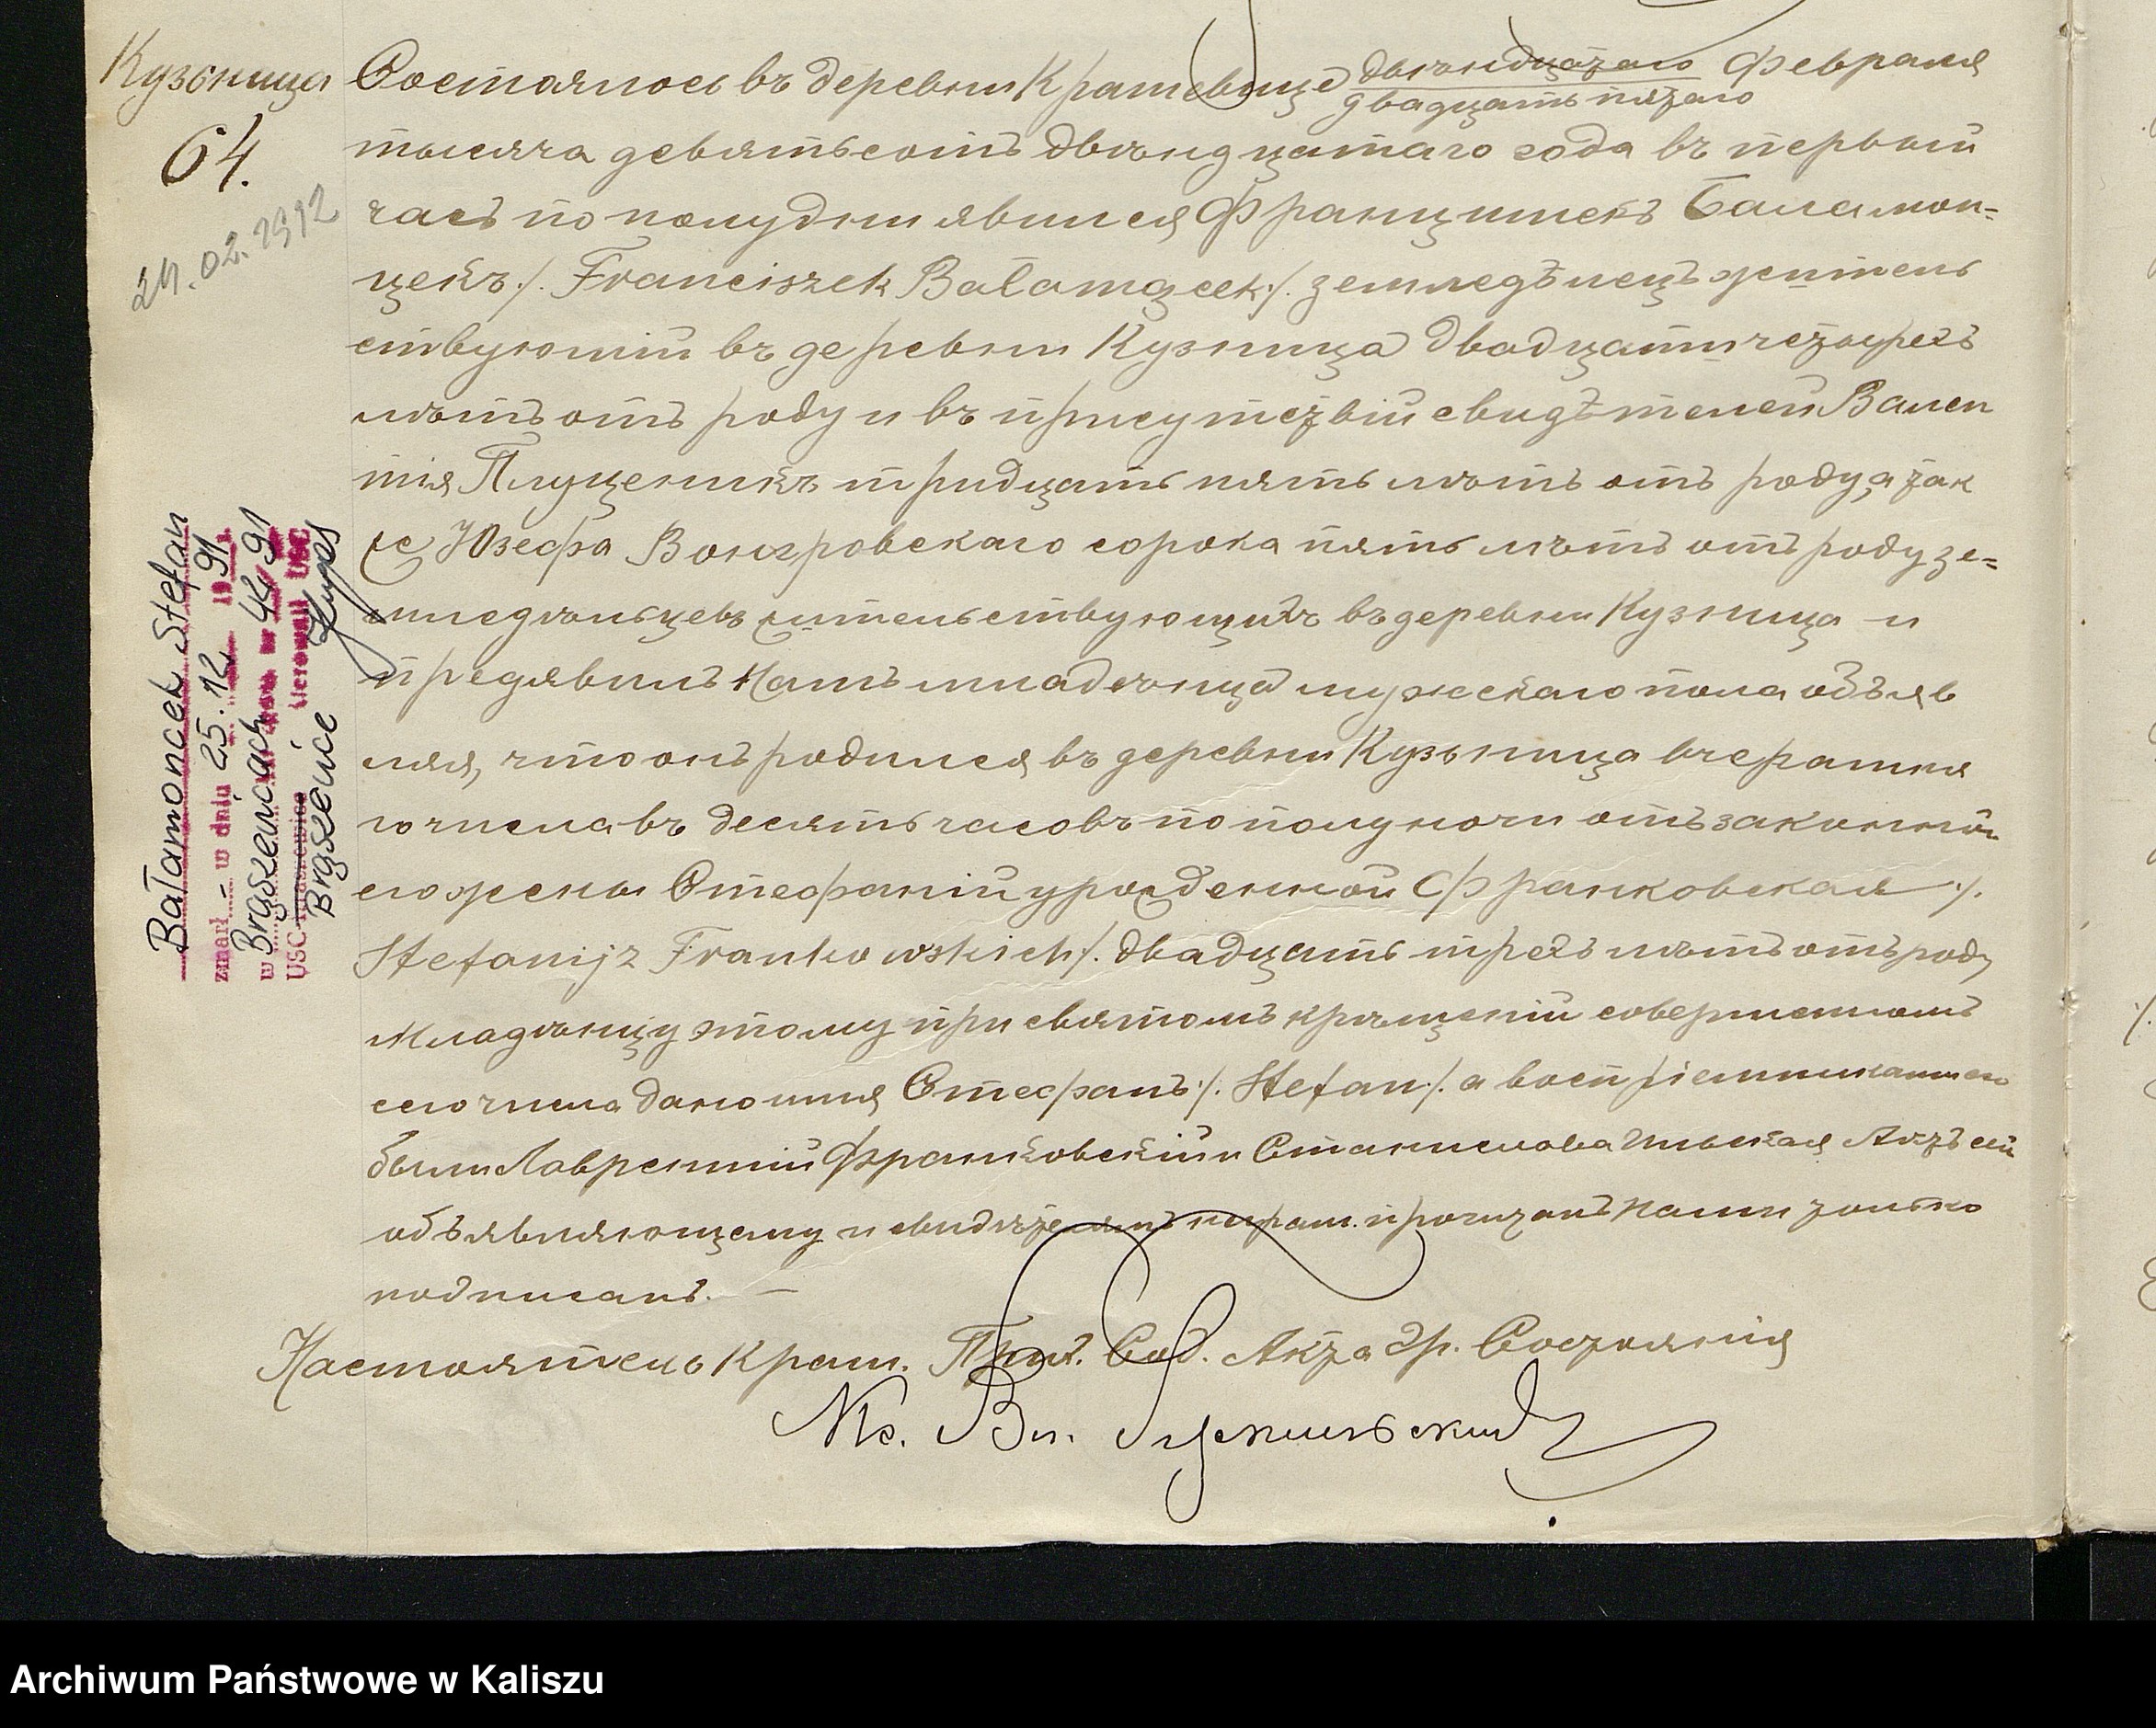 Кузьница
64.
24.02.1912
Состоялось въ деревни Крашевице двѣнадцатаго Февраля
двадцать пятаго
тысяча девятьсотъ двѣнадцатаго года въ первый
часъ по полудни явился Францишекъ Баламон-
цекъ ./. Franciszek Bałamącek ./. земледѣлецъ жител
ствующій въ деревни Кузница двадцати четырехъ
лѣтъ отъ роду и въ присутствіи свидѣтелей Вален
тія тридцать пять лѣтъ отъ роду, а так
же Юзефа Вонгровскаго сорока пять лѣтъ отъ роду зе-
мледѣльцевъ жительствующихъ въ деревни Кузница и
предявилъ Намъ младенца мужескаго пола объяв
ляя, что онъ родился въ деревни Кузьница вчерашня
го числа въ десять часовъ по полуночи отъ законной
его жены Стефаніи урожденной Франковская ./.
Stefanija Frankowskich ./. двадцать трехъ лѣтъ отъ роду
Младенцу этому при святомъ крѣщеніи совершенномъ
сего числа дано имя Стефанъ ./. Stefan ./. а воспріемниками его
были Лаврентій Франковскій и Станислава Актъ сей
объявляющему и свидѣтелямъ неграм. прочитанъ Нами только
подписанъ. —
Настоятель Краш. Прих. Сод. Акта Гр. Состоянія
Кс. Вл.
Bałamoncek Stefan
zmarł - w dniu 25.12 1991
w Brąszewicach 44/91
USC Brąszewice Kierownik USC
Archiwum Państwowe w Kaliszu